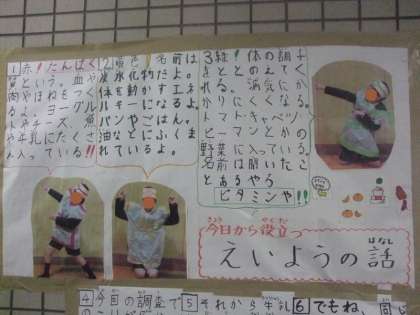 1赤!!たんぱく
質という。血や
肉やほねをつく
るよ。ヨーグル
トやチーズ、魚
や牛乳にたくさ
ん入っている!!
2黄色 名前は
炭水化物だよ。
体を動かすエネ
ルギーになるよ。
パンやごはん。
油などにふくま
れているよ。
3緑!体の調子
をととのえてく
れる。病気にか
かりにくくなる。
トマトキャベツ
ピーマンとかの
野菜に
名前は聞いたこ
とあるやろ
ビタミンや!!
今日から役立つ
えいようの話
4今日の調査で
5それから牛乳
6でもね、同じ